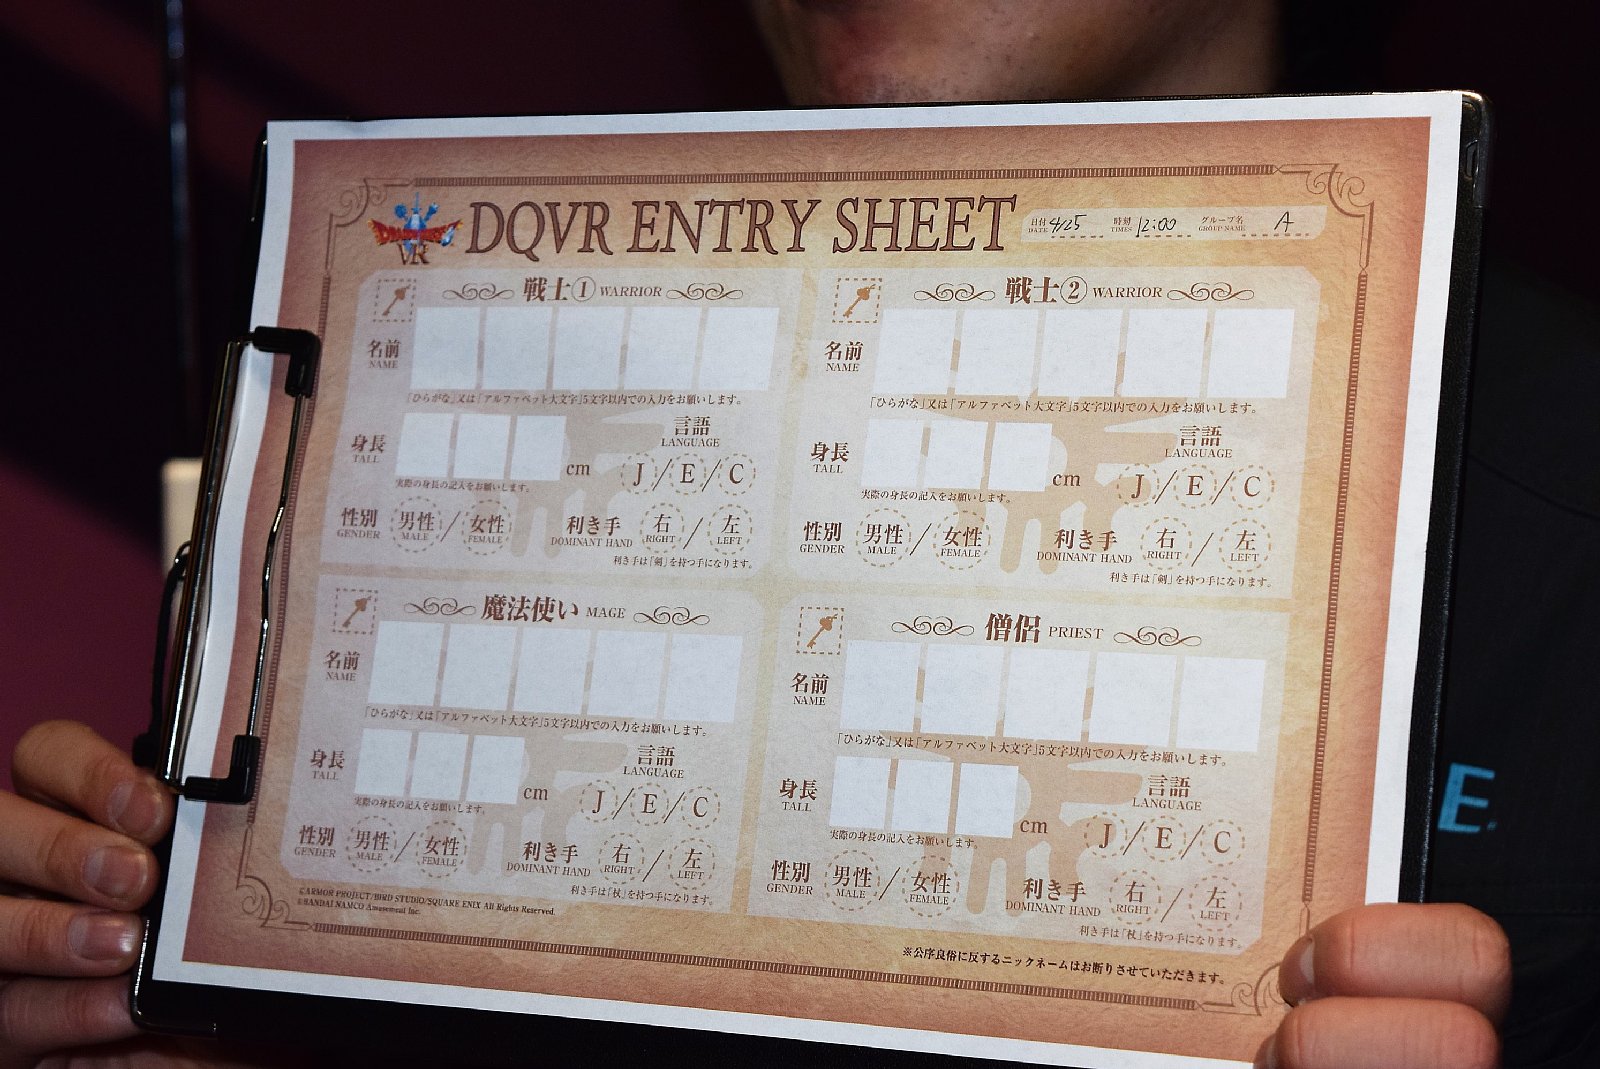 DRAGON QUEST VR
DQVR ENTRY SHEET
日付 DATE 4/25 時刻 TIMES 12:00 グループ名 GROUP NAME A
戦士① WARRIOR
名前 NAME
「ひらがな」又は「アルファベット大文字」5文字以内での入力をお願いします。
身長 TALL cm
実際の身長の記入をお願いします。
言語 LANGUAGE
J / E / C
性別 GENDER 男性 MALE / 女性 FEMALE
利き手 DOMINANT HAND 右 RIGHT / 左 LEFT
利き手は「剣」を持つ手になります。
戦士② WARRIOR
名前 NAME
「ひらがな」又は「アルファベット大文字」5文字以内での入力をお願いします。
身長 TALL cm
実際の身長の記入をお願いします。
言語 LANGUAGE
J / E / C
性別 GENDER 男性 MALE / 女性 FEMALE
利き手 DOMINANT HAND 右 RIGHT / 左 LEFT
利き手は「剣」を持つ手になります。
魔法使い MAGE
名前 NAME
「ひらがな」又は「アルファベット大文字」5文字以内での入力をお願いします。
身長 TALL cm
実際の身長の記入をお願いします。
言語 LANGUAGE
J / E / C
性別 GENDER 男性 MALE / 女性 FEMALE
利き手 DOMINANT HAND 右 RIGHT / 左 LEFT
利き手は「杖」を持つ手になります。
僧侶 PRIEST
名前 NAME
「ひらがな」又は「アルファベット大文字」5文字以内での入力をお願いします。
身長 TALL cm
実際の身長の記入をお願いします。
言語 LANGUAGE
J / E / C
性別 GENDER 男性 MALE / 女性 FEMALE
利き手 DOMINANT HAND 右 RIGHT / 左 LEFT
利き手は「杖」を持つ手になります。
©ARMOR PROJECT/BIRD STUDIO/SQUARE ENIX All Rights Reserved.
©BANDAI NAMCO Amusement Inc.
※公序良俗に反するニックネームはお断りさせていただきます。
E